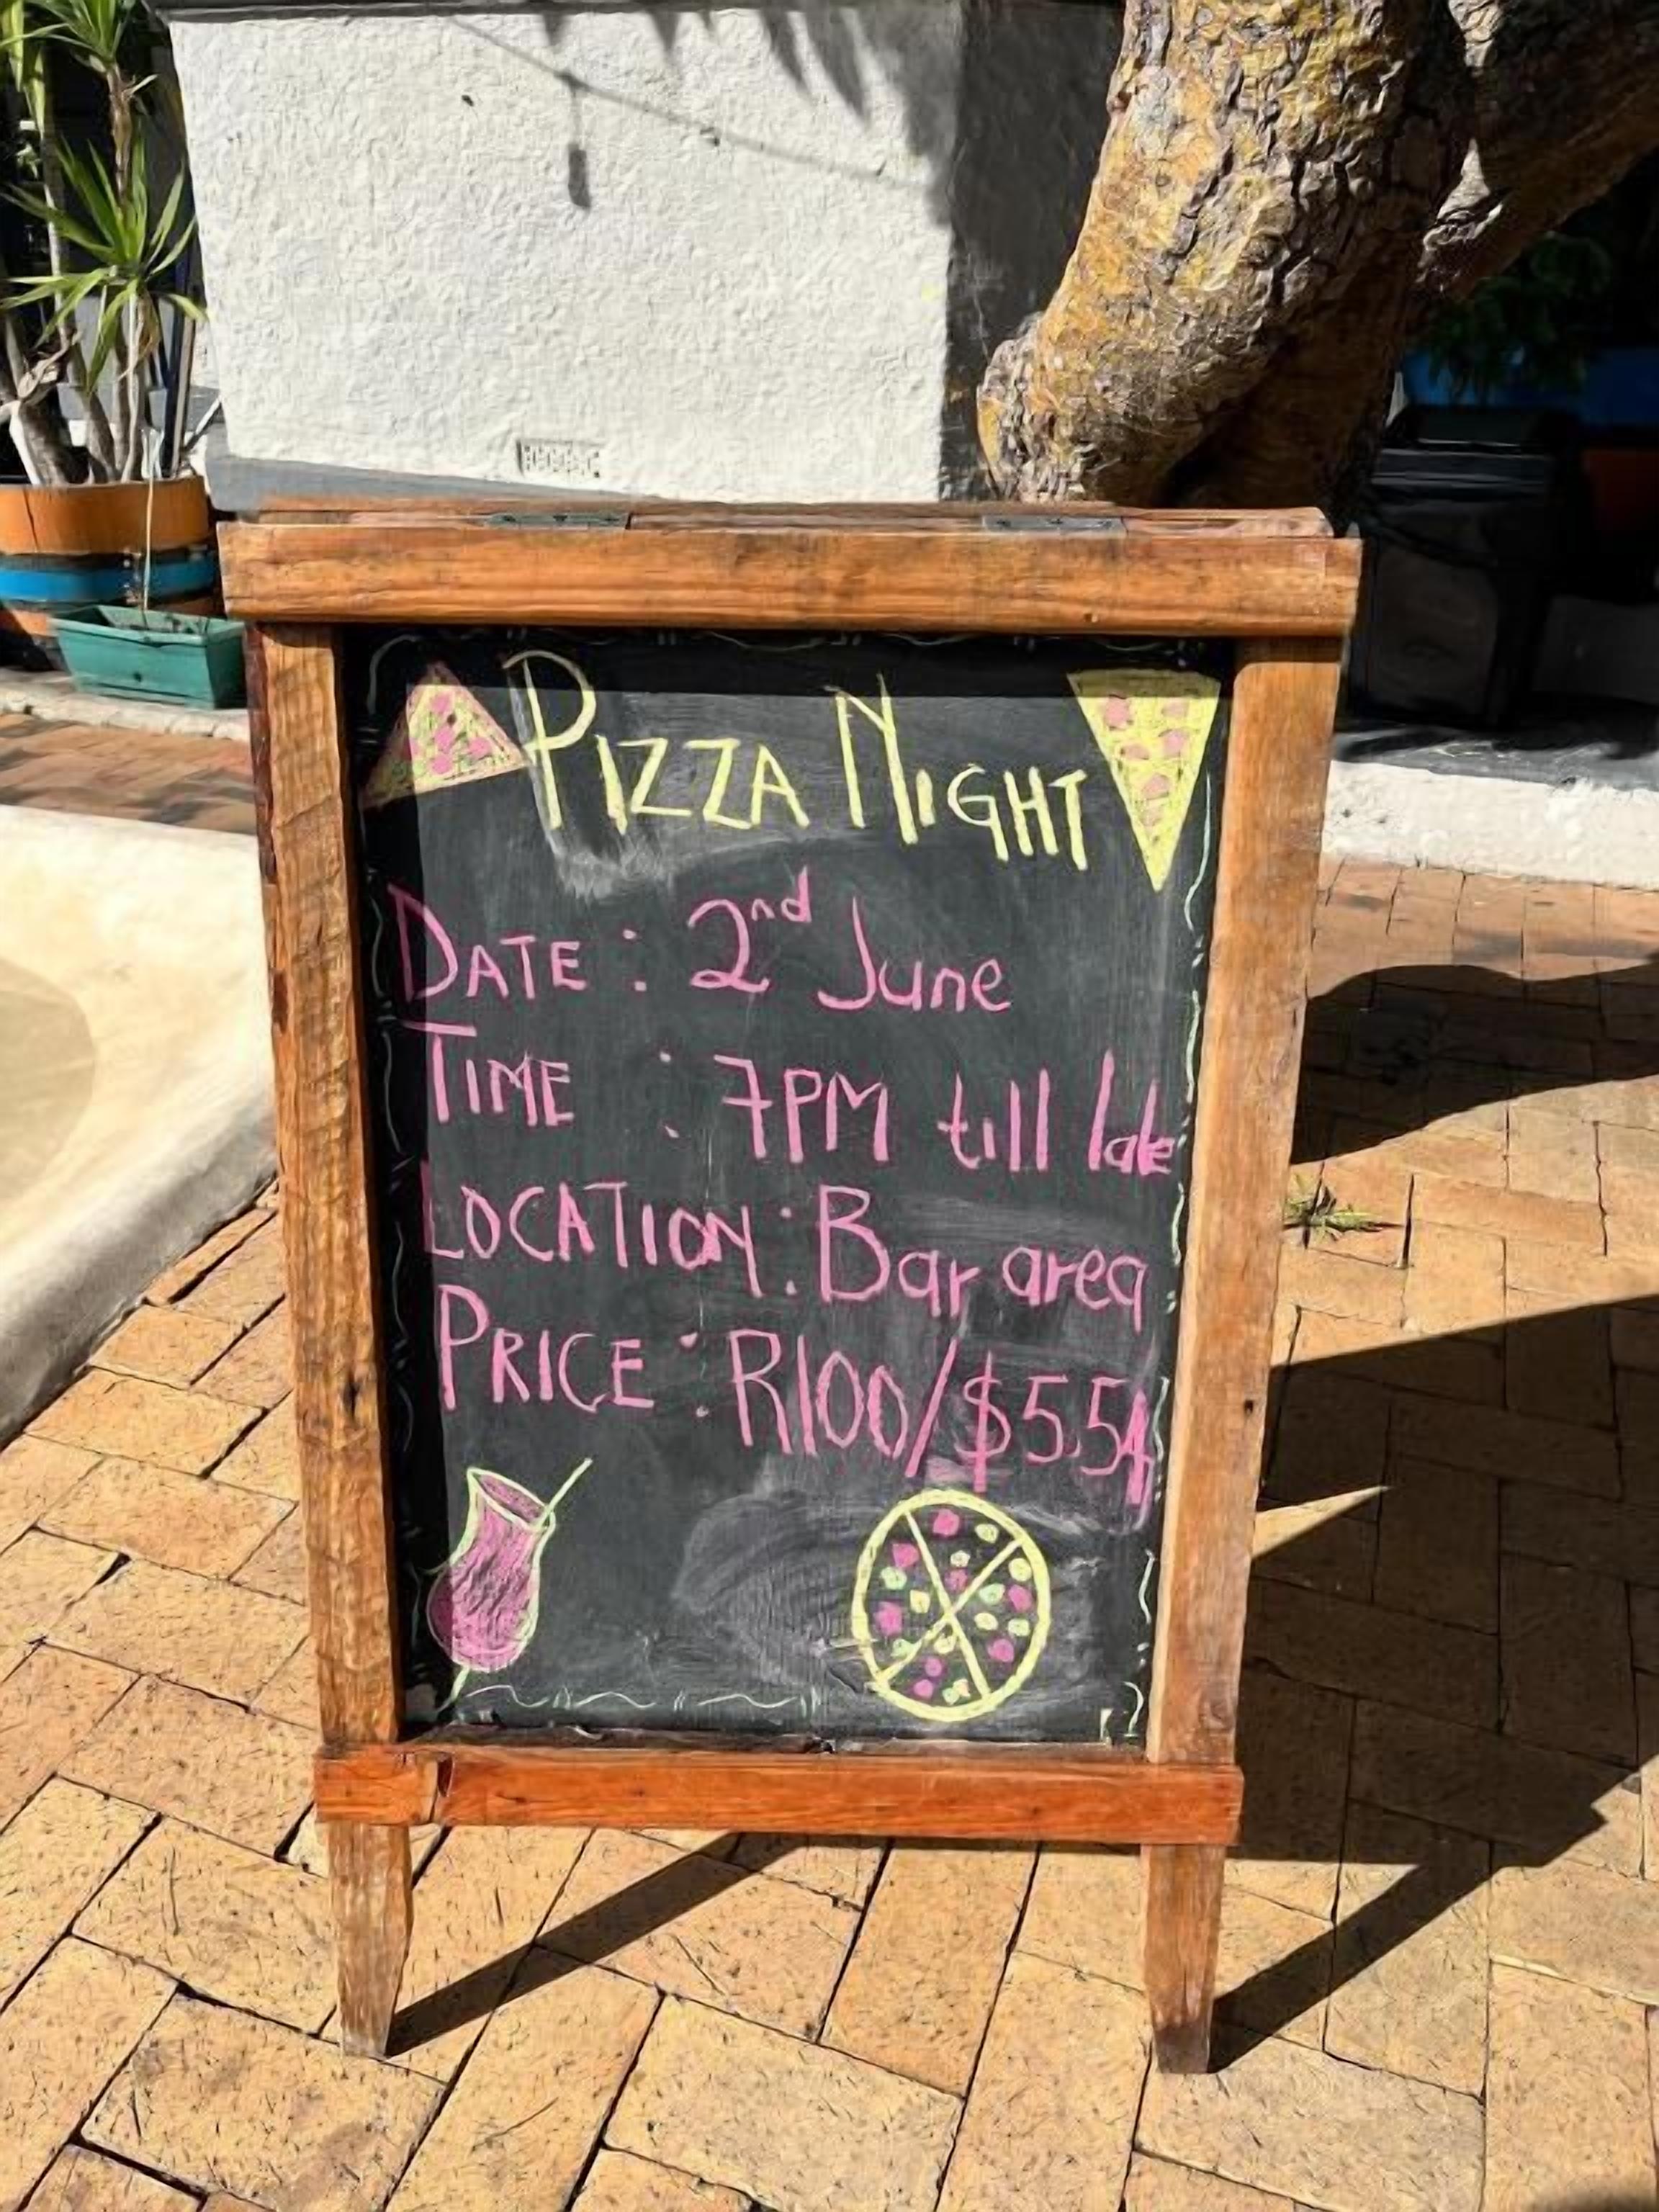 PIZZA NIGHT
DATE : 2nd June
TIME : 7PM till late
LOCATION : Bar area
PRICE : R100/$5.54